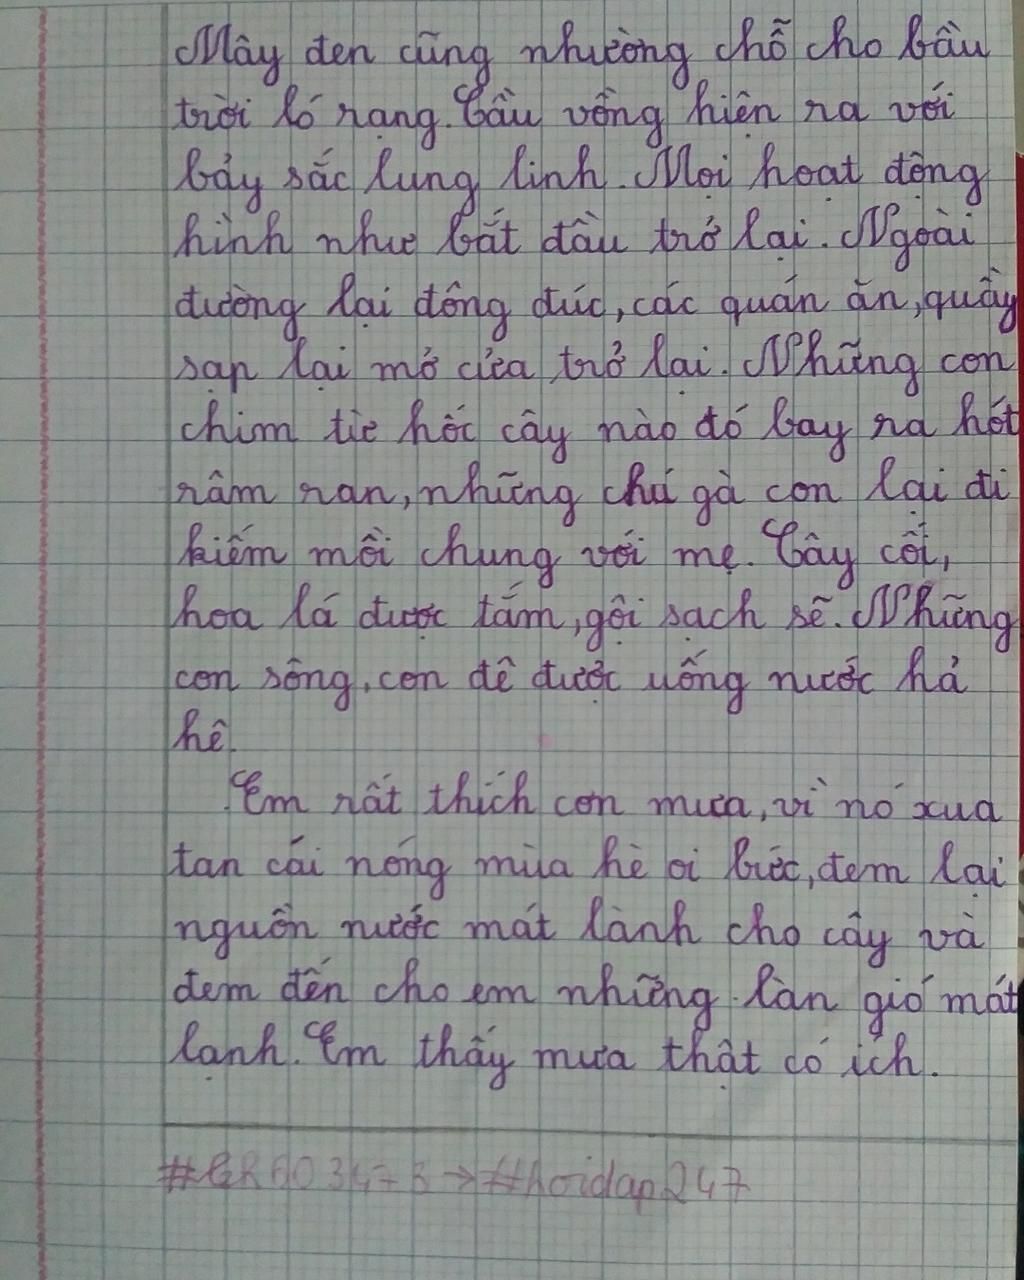 Mây đen cũng nhường chỗ cho bầu
trời ló rạng. Cầu vồng hiện ra với
bảy sắc lung linh. Mọi hoạt động
hình như bắt đầu trở lại. Ngoài
đường lại đông đúc, các quán ăn, quầy
sạp lại mở cửa trở lại. Những con
chim từ hốc cây nào đó bay ra hót
râm ran, những chú gà con lại đi
kiếm mồi chung với mẹ. Cây cối,
hoa lá được tắm, gội sạch sẽ. Những
con sông, con đê được uống nước hả
hê.
Em rất thích cơn mưa, vì nó xua
tan cái nóng mùa hè oi bức, đem lại
nguồn nước mát lành cho cây và
đem đến cho em những làn gió mát
lạnh. Em thấy mưa thật có ích.
→ #hoidap247